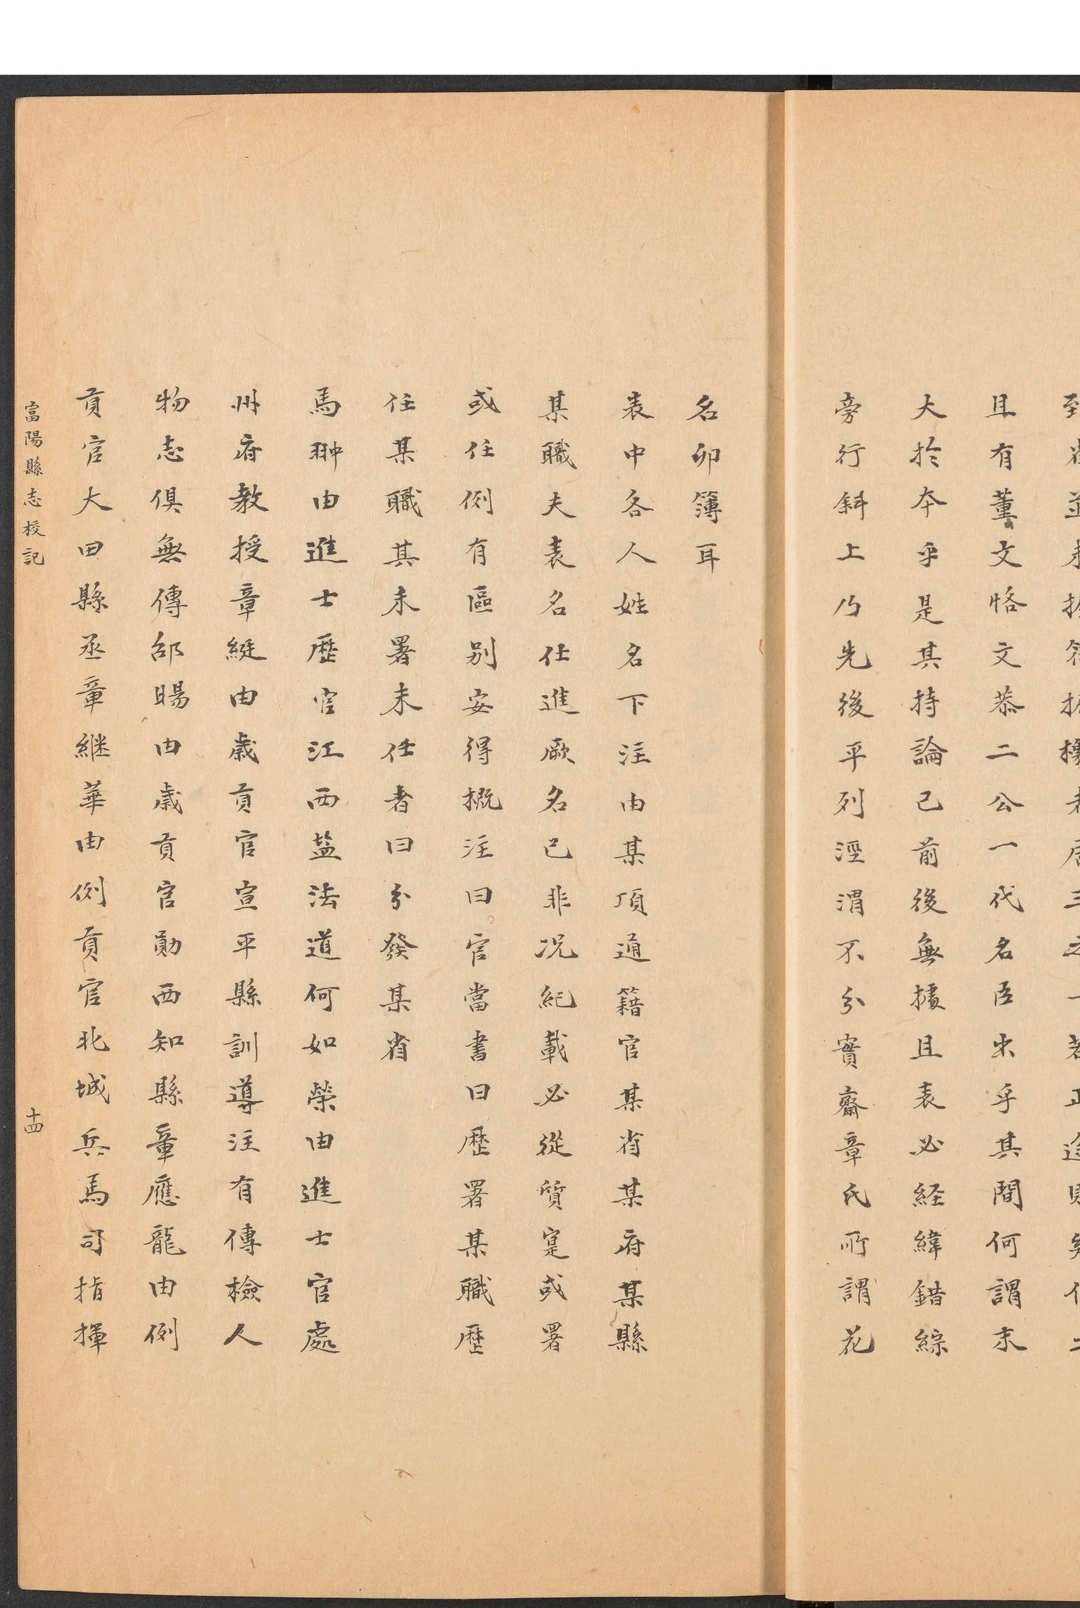 且有董文恪文恭二公一代名臣出乎其間何謂末
大於本乎是其持論已前後無據且表必経緯錯綜
旁行斜上乃先後平列涇渭不分實齋章氏所謂花
名卯簿耳
表中各人姓名下注由某項通籍官某省某府某縣
某職夫表名任進厥名已非况紀載必從質寔或署
或任例有區别安得概注曰官當書曰歷署某職歷
任某職其未署未任者曰分發某省
馬翀由進士歷官江西盐法道何如榮由進士官處
州府教授章綎由歲貢官宣平縣訓導注有傳檢人
物志俱無傳邰暘由歲貢官勛西知縣章應龍由例
貢官大田縣丞章継華由例貢官北城兵馬司指揮
富陽縣志校記
十四